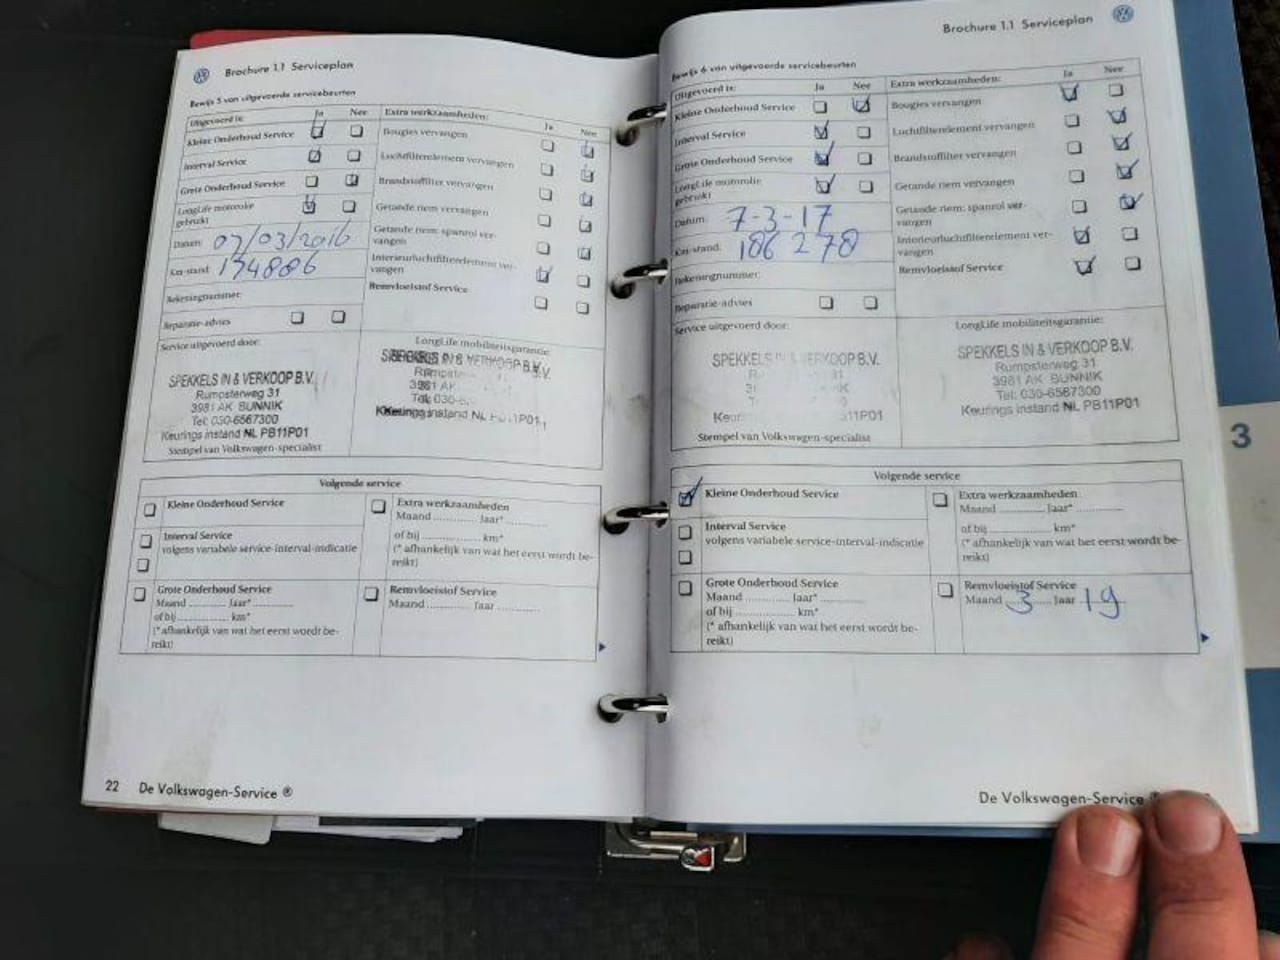 Brochure 1.1 Serviceplan
Bewijs 5 van uitgevoerde servicebeurten
Uitgevoerd is: Ja Nee Extra werkzaamheden: Ja Nee
Kleine Onderhoud Service
Interval Service
Grote Onderhoud Service
LongLife motorolie
gebruikt
Bougies vervangen
Luchtfilterelement vervangen
Brandstoffilter vervangen
Getande riem vervangen
Getande riem: spanrol ver-
vangen
Interieurluchtfilterelement ver-
vangen
Remvloeistof Service
Datum: 07/03/2016
Km-stand: 174886
Rekeningnummer:
Reparatie-advies
Service uitgevoerd door:
SPEKKELS IN & VERKOOP B.V.
Rumpsterweg 31
3981 AK BUNNIK
Tel: 030-6567300
Keurings instand NL PB11P01
Stempel van Volkswagen-specialist
LongLife mobiliteitsgarantie:
Volgende service
Kleine Onderhoud Service
Interval Service
volgens variabele service-interval-indicatie
Grote Onderhoud Service
Maand .......... Jaar* ..........
of bij .......... km*
(* afhankelijk van wat het eerst wordt be-
reikt)
Extra werkzaamheden
Maand .......... Jaar* ..........
of bij .......... km*
(* afhankelijk van wat het eerst wordt be-
reikt)
Remvloeistof Service
Maand .......... Jaar ..........
22 De Volkswagen-Service ®
Brochure 1.1 Serviceplan
Bewijs 6 van uitgevoerde servicebeurten
Uitgevoerd is: Ja Nee Extra werkzaamheden: Ja Nee
Kleine Onderhoud Service
Interval Service
Grote Onderhoud Service
LongLife motorolie
gebruikt
Bougies vervangen
Luchtfilterelement vervangen
Brandstoffilter vervangen
Getande riem vervangen
Getande riem: spanrol ver-
vangen
Interieurluchtfilterelement ver-
vangen
Remvloeistof Service
Datum: 7-3-17
Km-stand: 186 278
Rekeningnummer:
Reparatie-advies
Service uitgevoerd door:
SPEKKELS IN & VERKOOP B.V.
Stempel van Volkswagen-specialist
LongLife mobiliteitsgarantie:
SPEKKELS IN & VERKOOP B.V.
Rumpsterweg 31
3981 AK BUNNIK
Tel: 030-6567300
Keurings instand NL PB11P01
Volgende service
Kleine Onderhoud Service
Interval Service
volgens variabele service-interval-indicatie
Grote Onderhoud Service
Maand .......... Jaar* ..........
of bij .......... km*
(* afhankelijk van wat het eerst wordt be-
reikt)
Extra werkzaamheden
Maand .......... Jaar* ..........
of bij .......... km*
(* afhankelijk van wat het eerst wordt be-
reikt)
Remvloeistof Service
Maand 3 Jaar 19
De Volkswagen-Service
3